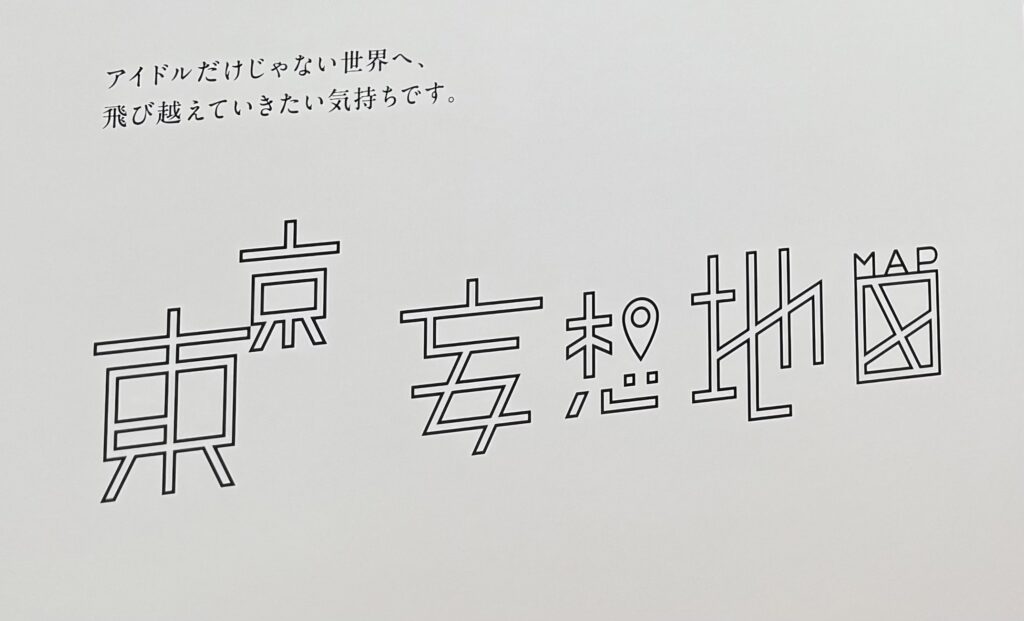 アイドルだけじゃない世界へ、
飛び越えていきたい気持ちです。
東京妄想地図
MAP